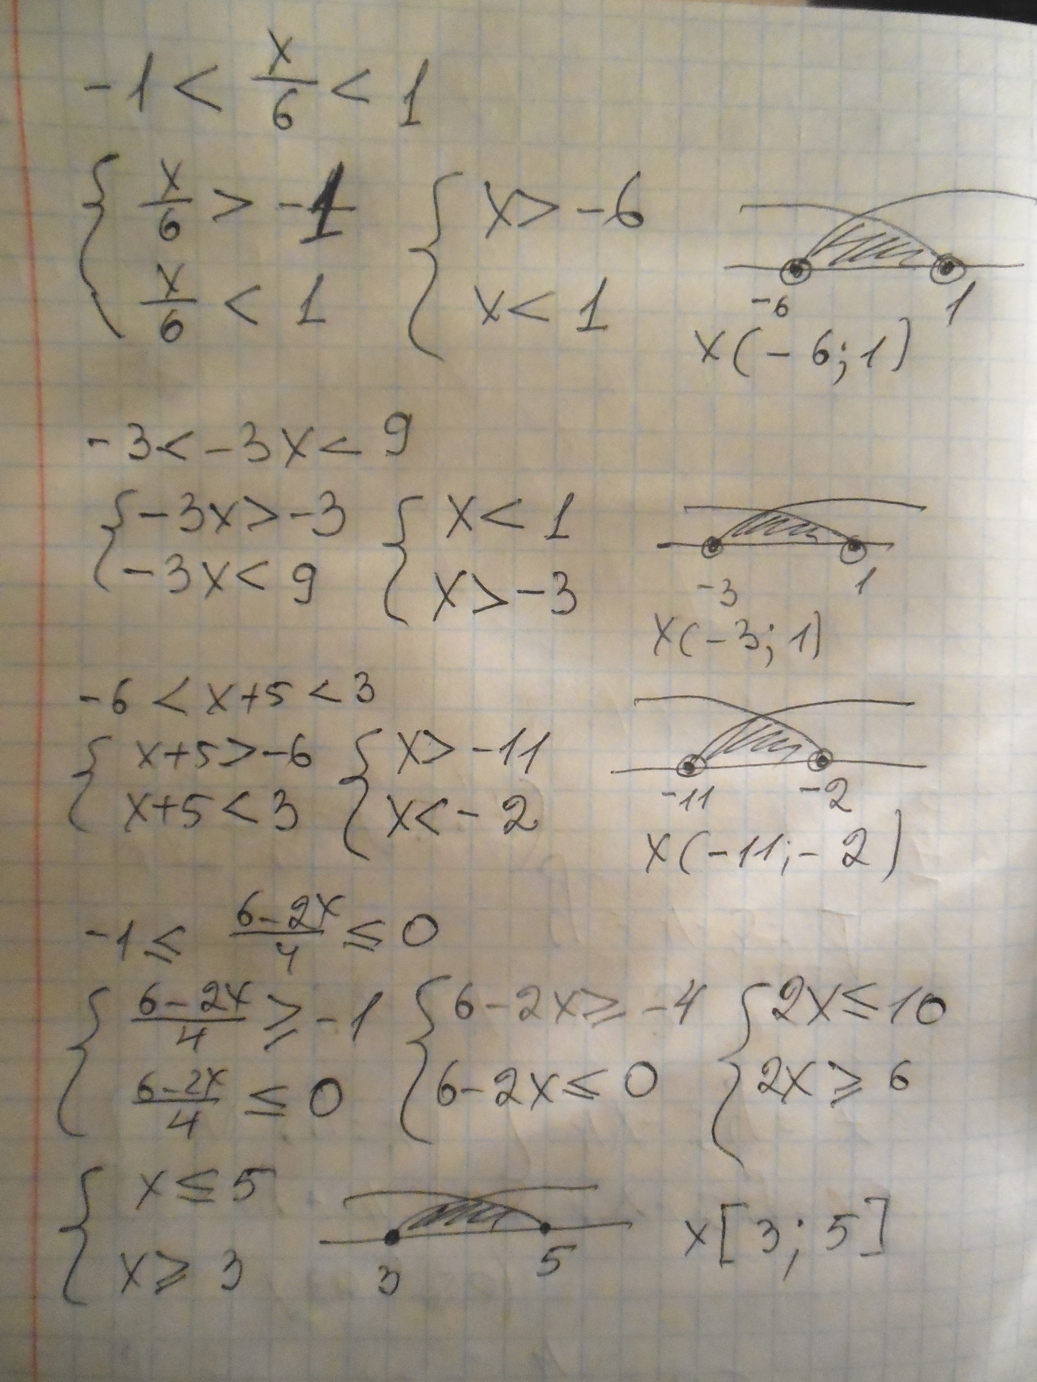 -1 < x/6 < 1
{ x/6 > -1 { x > -6
x/6 < 1 x < 1
-6 1
x(-6; 1)
-3 < -3x < 9
{ -3x > -3 { x < 1
-3x < 9 x > -3
-3 1
x(-3; 1)
-6 < x+5 < 3
{ x+5 > -6 { x > -11
x+5 < 3 x < -2
-11 -2
x(-11; -2)
-1 ≤ (6-2x)/4 ≤ 0
{ (6-2x)/4 ≥ -1 { 6-2x ≥ -4 { 2x ≤ 10
(6-2x)/4 ≤ 0 6-2x ≤ 0 2x ≥ 6
{ x ≤ 5
x ≥ 3
3 5
x[3; 5]